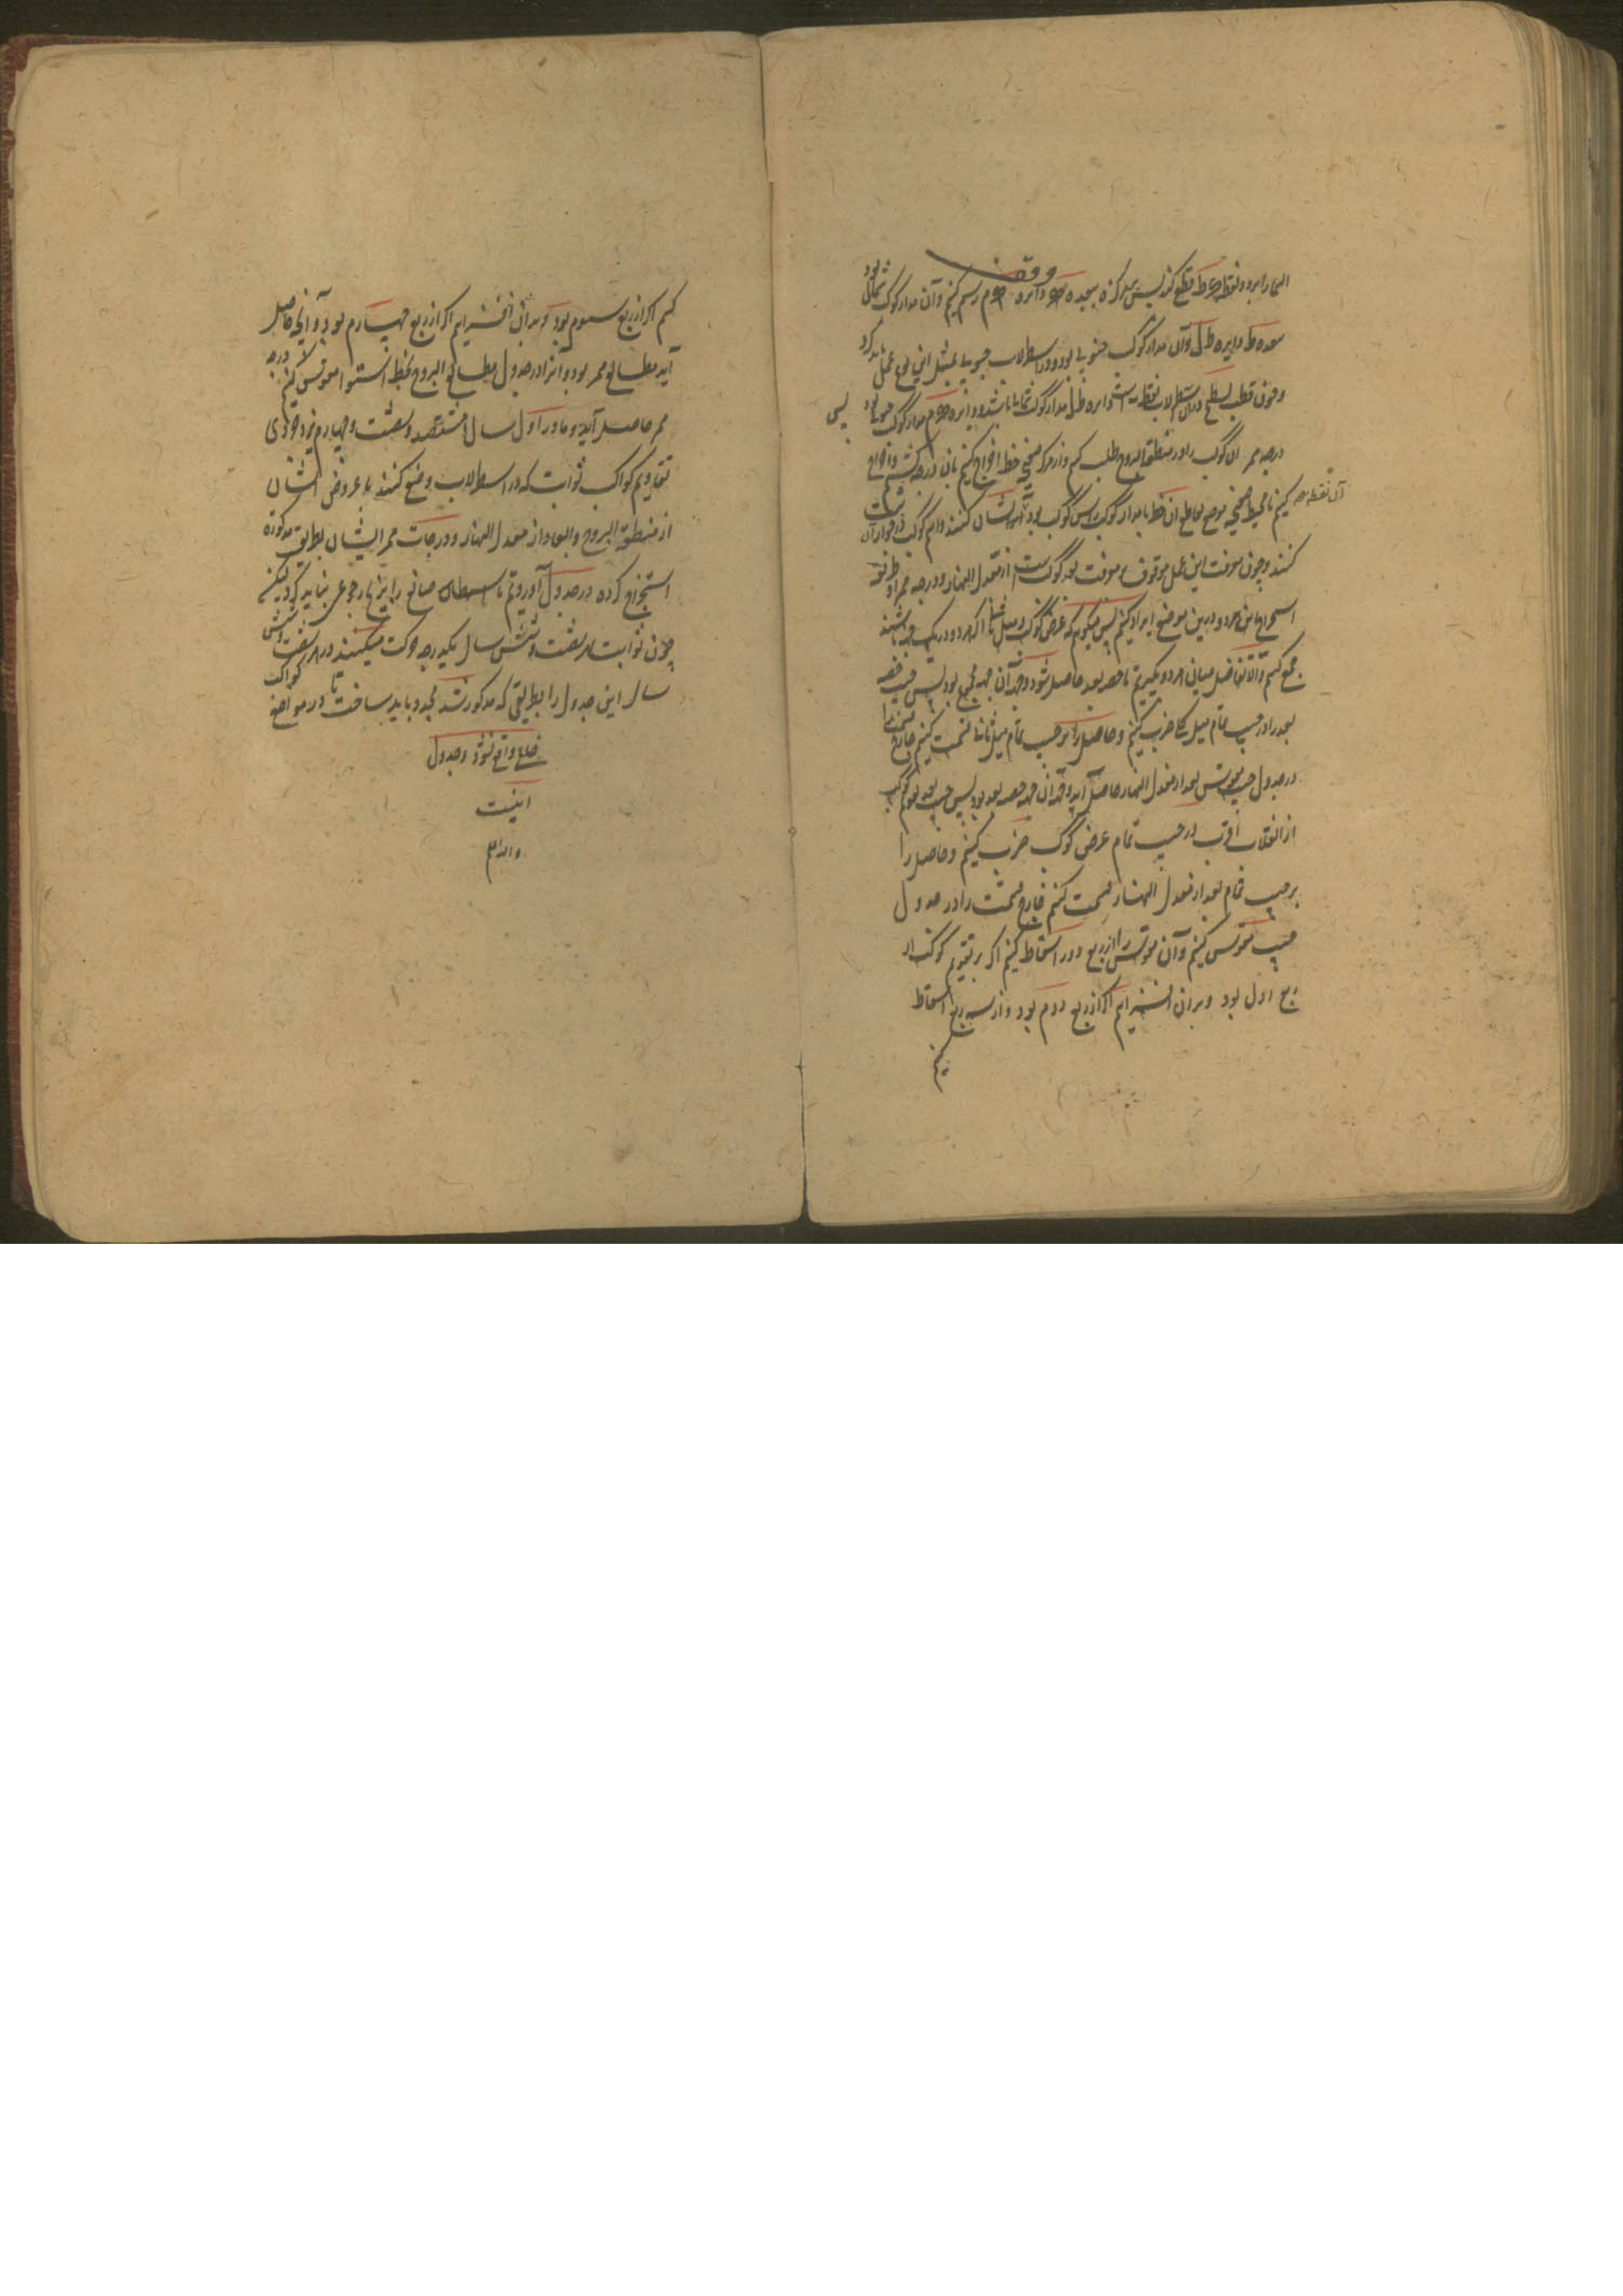 وقف
النهار را بر دو نقطه ع ط قطع کند پس بمرکز ه ببعد ه ع دایره ع م رسم کنیم و آن مدار کوکب شمالی بود
ببعد ه ط دایره ط ل و آن مدار کوکب جنوبی بود و در اسطرلاب جنوبی بمثل این نوع عمل باید کرد
و چون قطب سطح در آن اسطرلاب نقطه است دایره ط ل مدار کوکب شمالی باشد و دایره ع م مدار کوکب جنوبی بود پس
درجه ممر آن کوکب را در منطقة البروج طلب کنیم و از مرکز صفیحه خط اخراج کنیم بآن درجه
کنیم تا محیط صفیحه موضع تقاطع آن خط با مدار کوکب راس کوکب بود آنرا نشان کنند و اسم کوکب در جوار آن ثبت
آن نقطه
کنند و چون معرفت این عمل موقوف بر معرفت بعد کوکب است از معدل النهار و درجه ممر او طریق
استخراج این هر دو درین موضع ایراد کنیم پس میگویم که عرض کوکب و میل ثانی اگر هر دو در یک جهة باشند
جمع کنیم و الا تفاضل میان هر دو بگیریم تا حصه بعد حاصل شود و جهة آن جهة مجموع بود پس جیب حصه
بعد را در جیب تمام میل کلی ضرب کنیم و حاصل را بر جیب تمام میل ثانی قسمت کنیم خارج قسمت را
در جدول جیب مقوس بعد از معدل النهار حاصل آید و جهة آن جهة حصه بعد بود پس جیب بعد تقویم کوکب
از انقلاب اقرب در جیب تمام عرض کوکب ضرب کنیم و حاصل را
بر جیب تمام بعد از معدل النهار قسمت کنیم خارج قسمت را در جدول
جیب مقوس کنیم و آن مقوس را از ربع دور اسقاط کنیم اگر تقویم کوکب از
ربع اول بود و بر آن افزاییم اگر از ربع دوم بود و از سه ربع اسقاط
کنیم
کنیم اگر از ربع سیوم بود و بر آن افزاییم اگر از ربع چهارم بود و آنچه حاصل
آید مطالع ممر بود و آنرا در جدول مطالع البروج بخط استوا مقوس کنیم درجه
ممر حاصل آید و ما در اول سال هشتصد و شصت و چهارم یزدجردی
تقاویم کواکب ثوابت که در اسطرلاب وضع کنند با عروض ایشان
از منطقة البروج و ابعاد از معدل النهار و درجات ممر ایشان بطریق مذکوره
استخراج کرده در جدول آوردیم تا اسطرلاب صانع را بزیجات رجوعی نباید کرد لیکن
چون ثوابت در شصت و شش سال یکدرجه حرکت میکنند در هر شصت و شش
سال این جدول را بطریقی که مذکور شد مجدد باید ساخت تا در مواضع کواکب
خللی واقع نشود و جدول
اینست
والله اعلم